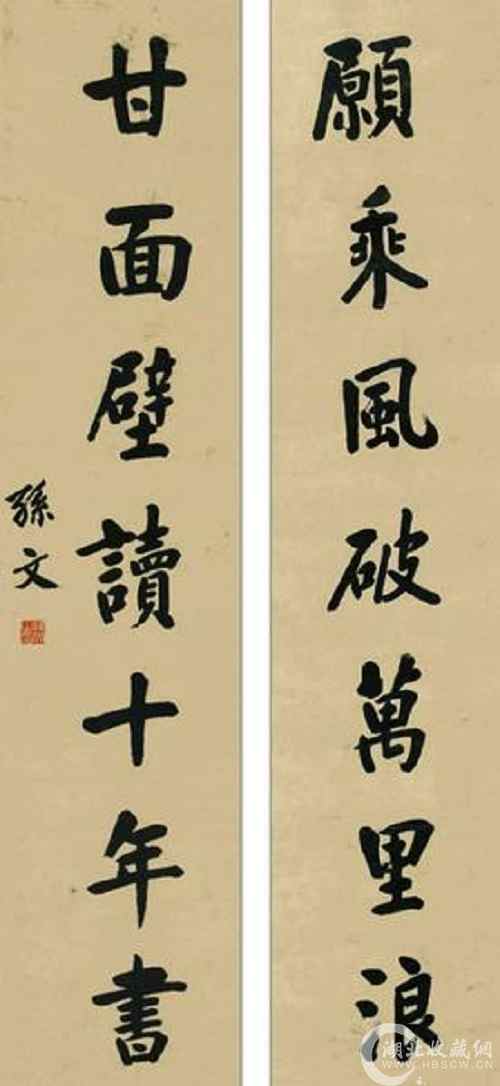 願乘風破萬里浪
甘面壁讀十年書
孫文
湖北收藏網
WWW.HBSCW.CN